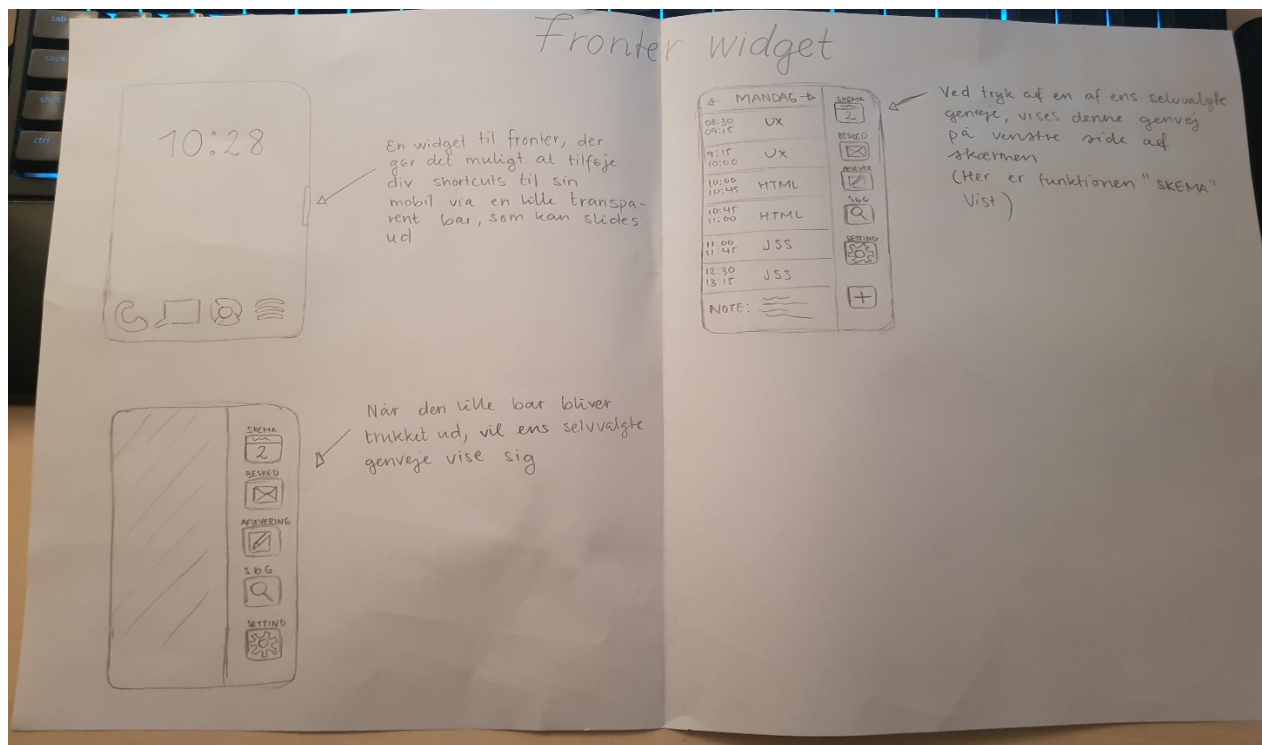 Fronter widget
10:28
En widget til fronter, der
gør det muligt at tilføje
div shortcuts til sin
mobil via en lille transpa-
rent bar, som kan slides
ud
SKEMA
2
BESKED
AFLEVERING
SØG
SETTING
Når den lille bar bliver
trukket ud, vil ens selvvalgte
genveje vise sig
← MANDAG →
08:30
09:15
UX
9:15
10:00
UX
10:00
10:45
HTML
10:45
11:00
HTML
11:00
11:45
JSS
12:30
13:15
JSS
NOTE:
SKEMA
2
BESKED
SØG
SETTING
+
Ved tryk af en af ens selvvalgte
genveje, vises denne genvej
på venstre side af
skærmen
(Her er funktionen "SKEMA"
Vist)
tab
ctrl